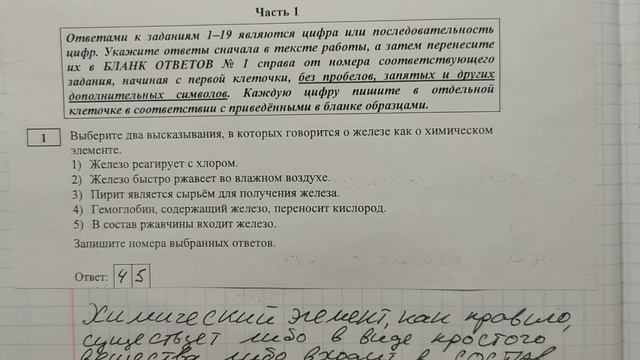 Часть 1
Ответами к заданиям 1–19 являются цифра или последовательность
цифр. Укажите ответы сначала в тексте работы, а затем перенесите
их в БЛАНК ОТВЕТОВ № 1 справа от номера соответствующего
задания, начиная с первой клеточки, без пробелов, запятых и других
дополнительных символов. Каждую цифру пишите в отдельной
клеточке в соответствии с приведёнными в бланке образцами.
1 Выберите два высказывания, в которых говорится о железе как о химическом
элементе.
1) Железо реагирует с хлором.
2) Железо быстро ржавеет во влажном воздухе.
3) Пирит является сырьём для получения железа.
4) Гемоглобин, содержащий железо, переносит кислород.
5) В состав ржавчины входит железо.
Запишите номера выбранных ответов.
Ответ: 4 5
Химический элемент, как правило,
существует либо в виде простого
вещества либо входит в состав